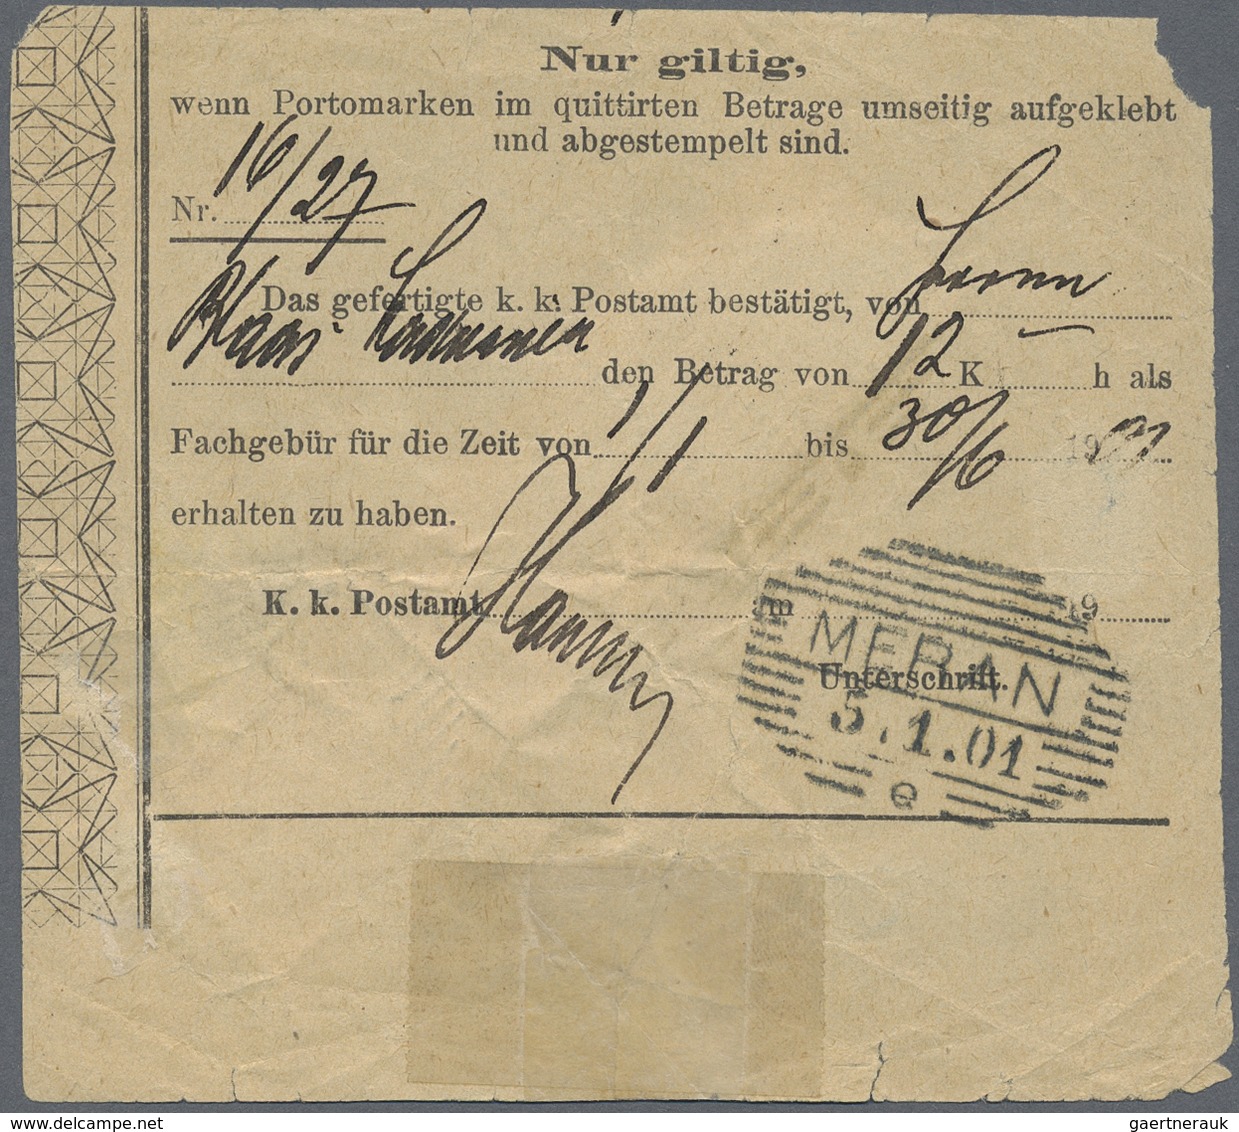 Nur giltig,
wenn Portomarken im quittirten Betrage umseitig aufgeklebt
und abgestempelt sind.
Nr. 16/27
Das gefertigte k. k. Postamt bestätigt, von Herrn
Blaas den Betrag von 12 K — h als
Fachgebür für die Zeit von 1/1 bis 30/6 1901
erhalten zu haben.
K. k. Postamt am 19
Unterschrift.
MERAN
5.1.01
e
gaertnerauk@delcampe.net